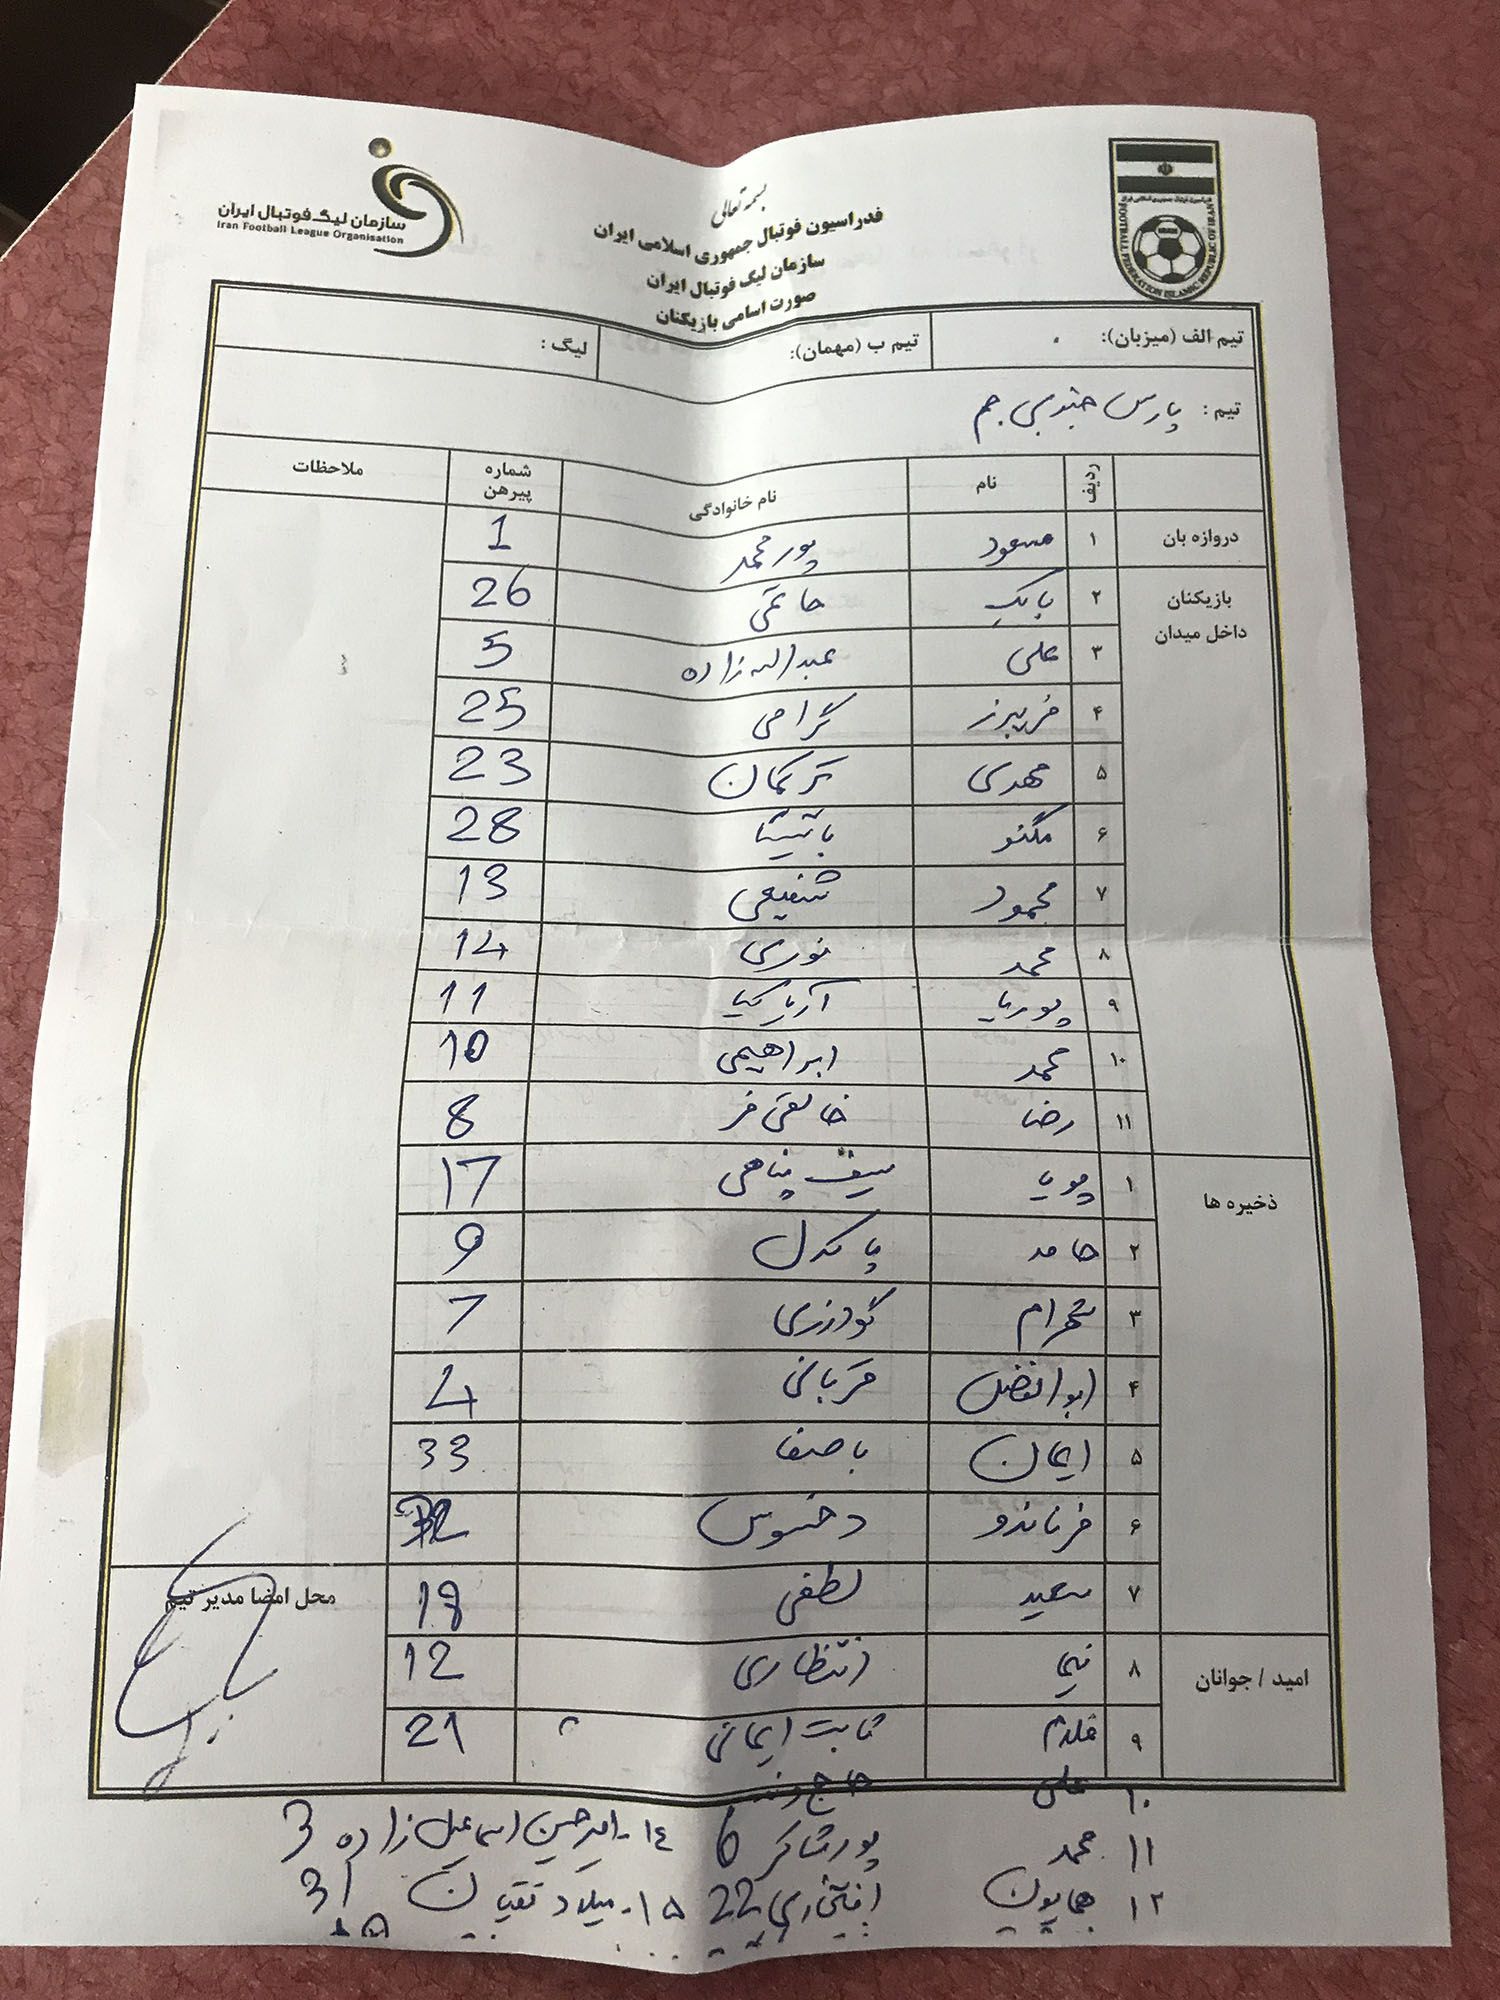 بسمه تعالی
فدراسیون فوتبال جمهوری اسلامی ایران
سازمان لیگ فوتبال ایران
صورت اسامی بازیکنان
سازمان لیگ فوتبال ایران
Iran Football League Organisation
FOOTBALL FEDERATION ISLAMIC REPUBLIC OF IRAN
تیم الف (میزبان): تیم ب (مهمان): لیگ :
تیم : پارس جنوبی جم
ردیف نام نام خانوادگی شماره پیرهن ملاحظات
دروازه بان ۱ مسعود پورمحمد 1
بازیکنان داخل میدان ۲ بابک حاتمی 26
۳ علی عبداله زاده 5
۴ فریبرز گرامی 25
۵ مهدی ترکمان 23
۶ مگنو باتیستا 28
۷ محمود شفیعی 13
۸ محمد نوری 14
۹ پوریا آریاکیا 11
۱۰ محمد ابراهیمی 10
۱۱ رضا خالقی فر 8
ذخیره ها ۱ پویا سیف پناهی 17
۲ حامد پاکدل 9
۳ شهرام گودرزی 7
۴ ابوالفضل قربانی 2
۵ ایمان باصفا 33
۶ فرناندو دخسوس
۷ سعید لطفی 18
محل امضا مدیر تیم
امید / جوانان ۸ نیما انتظاری 12
۹ ثابت ایمانی 21
۱۰ علی
۱۱ محمد پورشاکر 6 ۱۴- امیرحسین اسماعیل زاده 3
۱۲ همایون افتخاری 22 ۱۵- میلاد نقیان 31